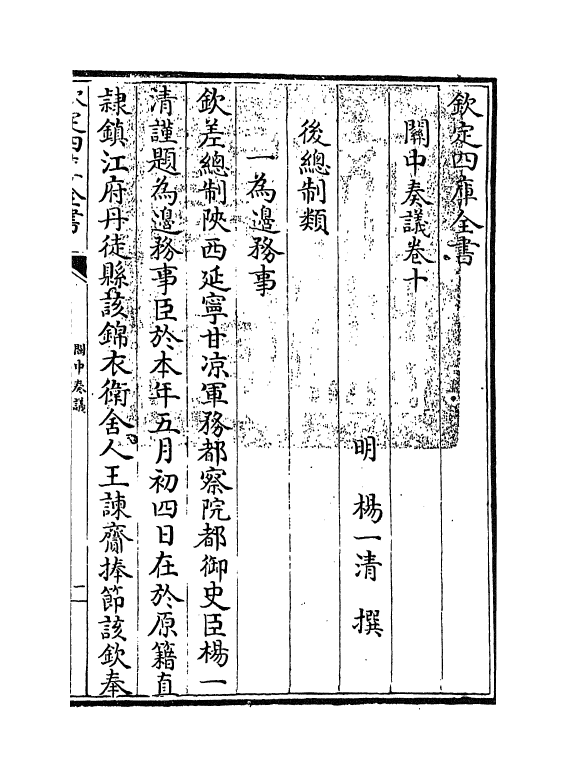 欽定四庫全書
關中奏議卷十
明 楊一清 撰
後總制類
一為邊務事
欽差總制陜西延寧甘凉軍務都察院都御史臣楊一
清謹題為邊務事臣於本年五月初四日在於原籍直
隷鎮江府丹徒縣該錦衣衛舍人王諫齎捧節該欽奉
欽定四庫全書
關中奏議
一